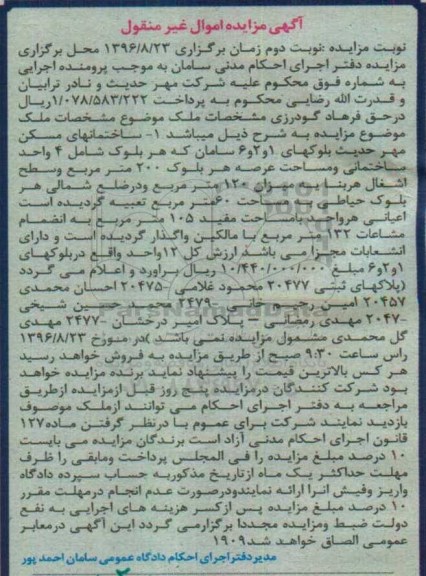 آگهی مزایده اموال غیر منقول
نوبت مزایده :نوبت دوم زمان برگزاری ۱۳۹۶/۸/۲۳ محل برگزاری
مزایده دفتر اجرای احکام مدنی سامان به موجب پرومنده اجرایی
به شماره فوق محکوم علیه شرکت مهر حدیث و نادر ترابیان
و قدرت الله رضایی محکوم به پرداخت ۱/۰۷۸/۵۸۳/۲۲۲ریال
درحق فرهاد گودرزی مشخصات ملک موضوع مشخصات ملک
موضوع مزایده به شرح ذیل میباشد ۱- ساختمانهای مسکن
مهر حدیث بلوکهای ۱و۲و۶ سامان که هر بلوک شامل ۴ واحد
ساختمانی ومساحت عرصه هر بلوک ۲۰۰ متر مربع وسطح
اشغال هربنا به میزان ۱۲۰متر مربع ودرضلع شمالی هر
بلوک حیاطی به مساحت ۶۰متر مربع تعبیه گردیده است
اعیانی هرواحد بامساحت مفید ۱۰۵ متر مربع به انضمام
مشاعات ۱۳۲ متر مربع با مالکین واگذار گردیده است و دارای
انشعابات مجزا می باشد ارزش کل ۱۲واحد واقع دربلوکهای
۱و۲و۶ مبلغ ۱۰/۴۴۰/۰۰۰/۰۰۰ ریال براورد و اعلام می گردد
(پلاکهای ثبتی ۲۰۴۷۷ محمود غلامی -۲۰۴۷۵ احسان محمدی
۲۰۴۵۷ امین رحیم خانی - ۲۴۷۹ محمد حسین شیخی
-۲۰۴۷۰ مهدی رمضانی - پلاک امیر درخشان -۲۴۷۷ مهدی
گل محمدی مشمول مزایده نمی باشد )در مورخ ۱۳۹۶/۸/۲۳
راس ساعت ۹:۳۰ صبح از طریق مزایده به فروش خواهد رسید
هر کس بالاترین قیمت را پیشنهاد نماید برنده مزایده خواهد
بود شرکت کنندگان درمزایده پنج روز قبل ازمزایده ازطریق
مراجعه به دفتر اجرای احکام می توانند ازملک موصوف
بازدید نمایند شرکت برای عموم با درنظر گرفتن ماده۱۲۷
قانون اجرای احکام مدنی آزاد است برندگان مزایده می بایست
۱۰ درصد مبلغ مزایده را فی المجلس پرداخت ومابقی را ظرف
مهلت حداکثر یک ماه ازتاریخ مذکوربه حساب سپرده دادگاه
واریز وفیش انرا ارائه نمایندودرصورت عدم انجام درمهلت مقرر
۱۰ درصد مبلغ مزایده پس ازکسر هزینه های اجرایی به نفع
دولت ضبط ومزایده مجددا برگزارمی گردد این آگهی درمعابر
عمومی الصاق خواهد شد۱۹۰۹
مدیردفتراجرای احکام دادگاه عمومی سامان احمد پور